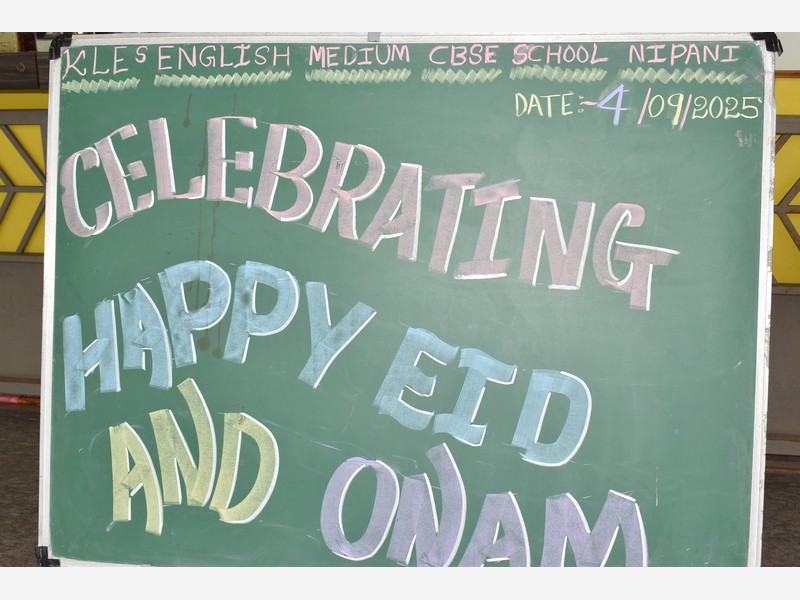 KLE's ENGLISH MEDIUM CBSE SCHOOL NIPANI
DATE:-4/09/2025
CELEBRATING
HAPPY EID
AND ONAM